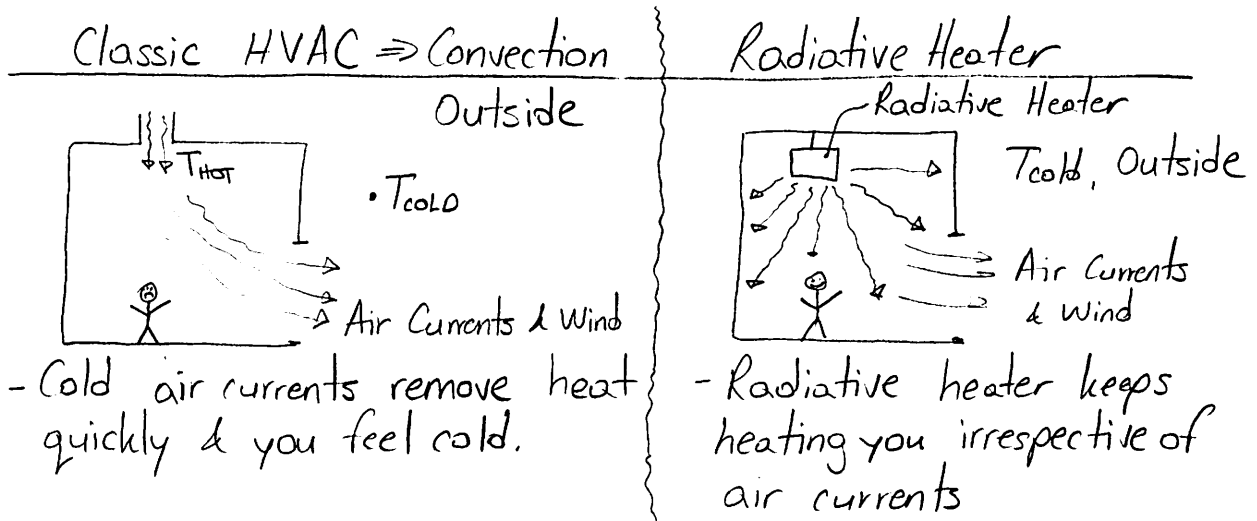 Classic HVAC ⇒ Convection
Outside
THOT
• TCOLD
Air Currents & Wind
- Cold air currents remove heat
quickly & you feel cold.
Radiative Heater
Radiative Heater
Tcold, Outside
Air Currents
& Wind
- Radiative heater keeps
heating you irrespective of
air currents